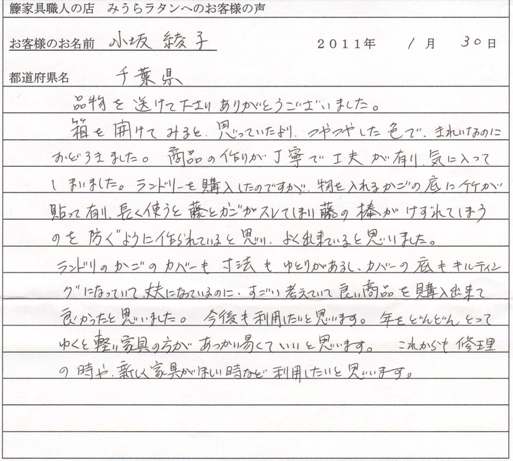 籐家具職人の店　みうらラタンへのお客様の声
お客様のお名前　小坂 綾子　２０１１年　1月　30日
都道府県名　千葉県
品物を送けて下さりありがとうございました。
箱を開けてみると、思っていたより、つやつやした色で、きれいなのに
おどろきました。商品の作りが丁寧で工夫が有り、気に入って
しまいました。ランドリーを購入したのですが、物を入れるかごの底に竹が
貼って有り、長く使うと藤とカゴがスレてしまい藤の棒がけずれてしまう
のを防ぐように作られていると思い、よく出来ていると思いました。
ランドリのかごのカバーも寸法もゆとりがあるし、カバーの底もキルティン
グになっていて、丈夫になっているのに、すごい考えていて良い商品を購入出来て
良かったと思いました。今後も利用したいと思います。年をどんどんとって
ゆくと軽い家具の方があつかい易くていいと思います。これからも修理
の時や、新しく家具がほしい時など利用したいと思います。